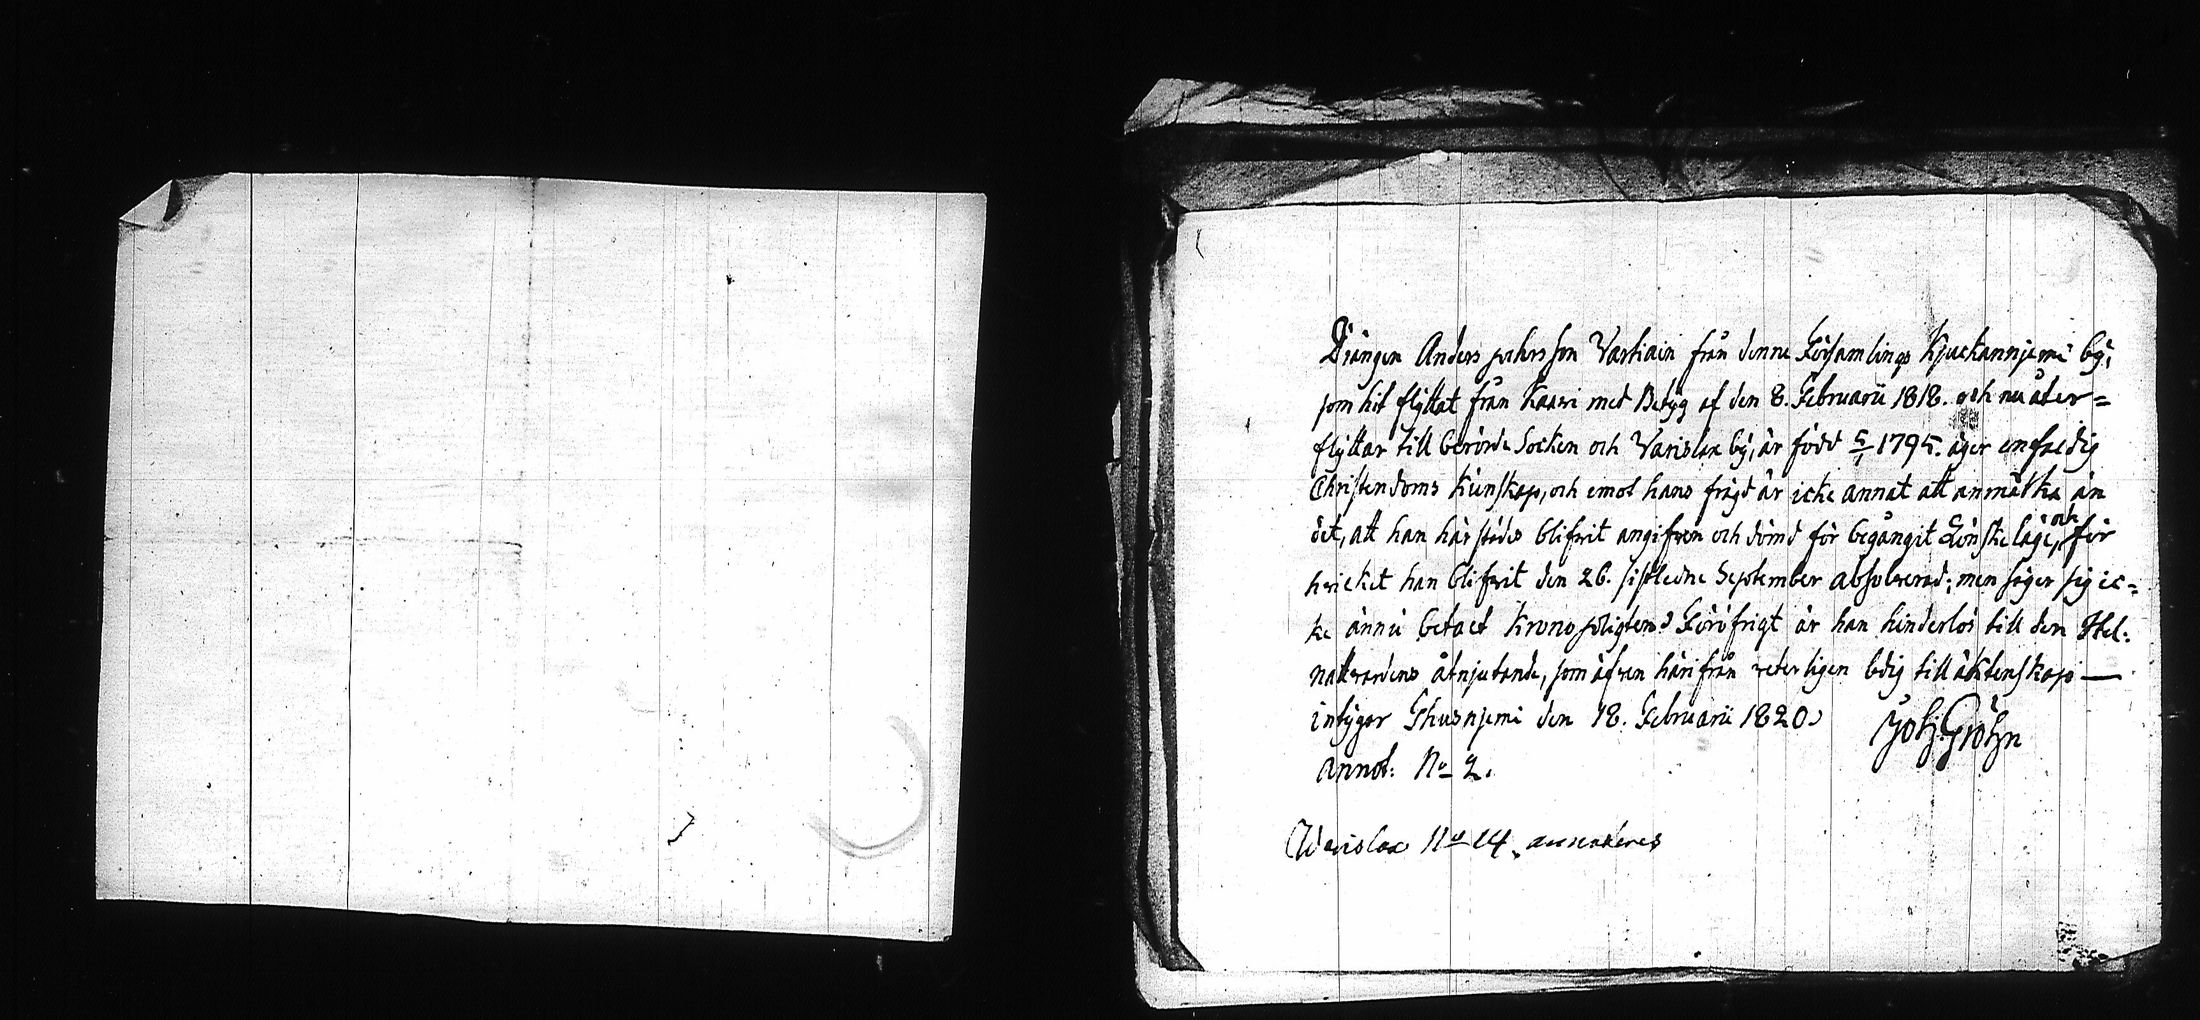 Drängen Anders petersson Vartiain från denne Församlings Kjuckannjemi by,
som hit flyttat från Kaavi med Betyg af den 8. Februarii 1818. och nu åter=
flyttar till berörde Socken och Varislax by, är född 5/1 1795. äger enfaldig
Christendoms kunskap, och emot hans frägd är icke annat att anmärka än
det, att han härstädes blifvit angifven och dömd för begångit Lönskeläge, och för
hvicket han blifvit den 26. sistledne September absolverad; men säger sig ic=
ke ännu betalt Kronopligten. Föröfrigt är han hinderlös till den Hel:
nattvardens åtnjutande, som äfven härifrån veterligen ledig till äktenskap —
intygar Ghusnjemi den 18. Februarii 1820. Joh: Gröhn
annot: No 2.
Warislax No 14. annoteres